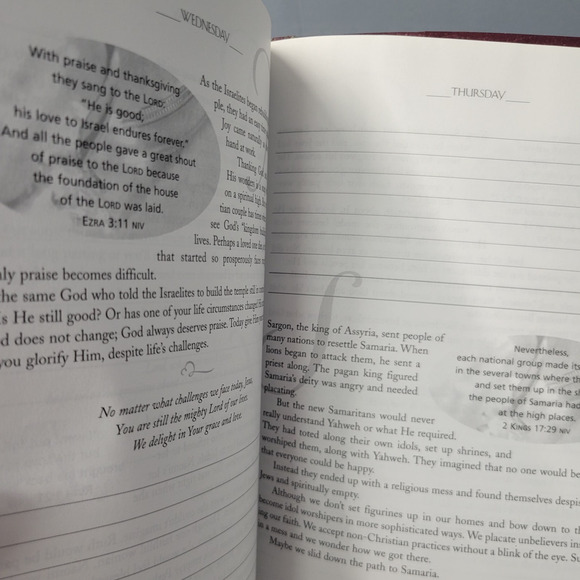 WEDNESDAY
With praise and thanksgiving
they sang to the LORD:
"He is good;
his love to Israel endures forever."
And all the people gave a great shout
of praise to the LORD because
the foundation of the house
of the LORD was laid.
EZRA 3:11 NIV
As the Israelites began
ple, they had an easy
Joy came naturally
hand at work.
Thanking God
His
on a spiritual high.
tian couple has
see God's "kingdom
lives. Perhaps a loved one
that started so prosperously
praise becomes difficult.
the same God who told the Israelites to build the temple still
He still good? Or has one of your life circumstances changed
does not change; God always deserves praise. Today
you glorify Him, despite life's challenges.
No matter what challenges we face today, Jesus,
You are still the mighty Lord of our lives.
We delight in Your grace and love.
THURSDAY
Sargon, the king of Assyria, sent people of
many nations to resettle Samaria. When
lions began to attack them, he sent a
priest along. The pagan king figured
Samaria's deity was angry and needed
placating.
But the new Samaritans would never
really understand Yahweh or what He required.
They had toted along their own idols, set up shrines, and
worshiped them, along with Yahweh. They imagined no one would be
that everyone could be happy.
Instead they ended up with a religious mess and found themselves
Jews and spiritually empty.
Although we don't set figurines up in our homes and bow down to
become idol worshipers in more sophisticated ways. We placate unbelievers
our faith. We accept non-Christian practices without a blink of the eye.
in a mess and we wonder how we got there.
Maybe we slid down the path to Samaria.
Nevertheless,
each national group made its
in the several towns where
and set them up in the
the people of Samaria had
at the high places.
2 KINGS 17:29 NIV